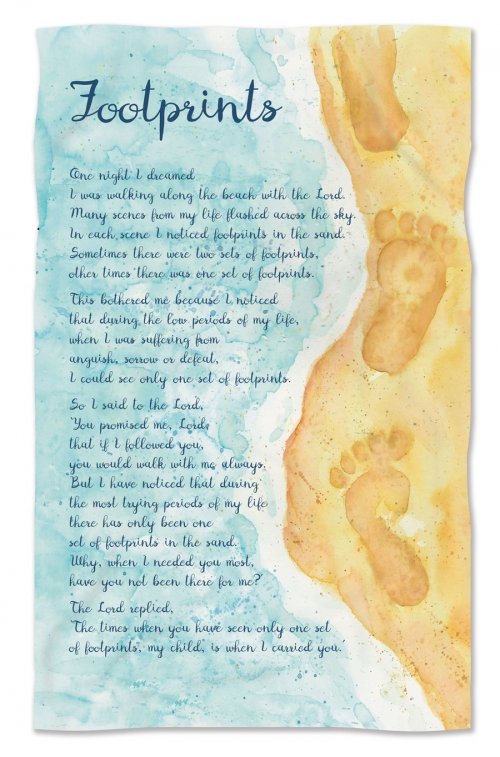 Footprints
One night I dreamed
I was walking along the beach with the Lord.
Many scenes from my life flashed across the sky.
In each scene I noticed footprints in the sand.
Sometimes there were two sets of footprints,
other times there was one set of footprints.
This bothered me because I noticed
that during the low periods of my life,
when I was suffering from
anguish, sorrow or defeat,
I could see only one set of footprints.
So I said to the Lord,
"You promised me, Lord,
that if I followed you,
you would walk with me always.
But I have noticed that during
the most trying periods of my life
there has only been one
set of footprints in the sand.
Why, when I needed you most,
have you not been there for me?"
The Lord replied,
"The times when you have seen only one set
of footprints, my child, is when I carried you.